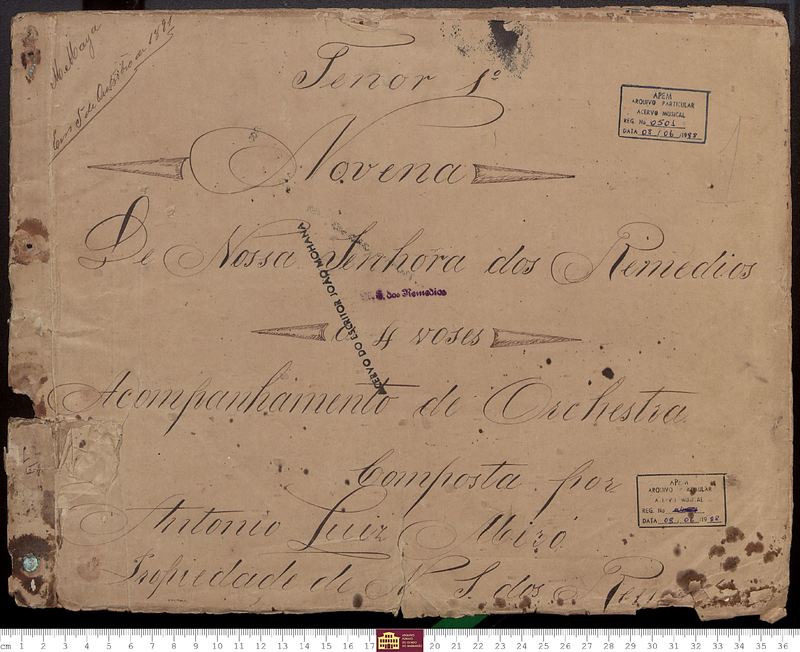 M. Maya
Em 5 de Outubro de 1891
Tenor 1º
APEM
ARQUIVO PARTICULAR
ACERVO MUSICAL
REG. Nº 0501
DATA 03 / 06 / 1988
Novena
De Nossa Senhora dos Remedios
ACERVO DO ESCRITOR JOÃO MOHANA
N. S. dos Remedios
a 4 voses
Acompanhamento de Orchestra
Composta por
Antonio Luiz Miró
APEM
ARQUIVO PARTICULAR
ACERVO MUSICAL
REG. No
DATA 03 / 06 / 1988
Propiedade de N. S. dos
cm 1 2 3 4 5 6 7 8 9 10 11 12 13 14 15 16 17 20 21 22 23 24 25 26 27 28 29 30 31 32 33 34 35 36